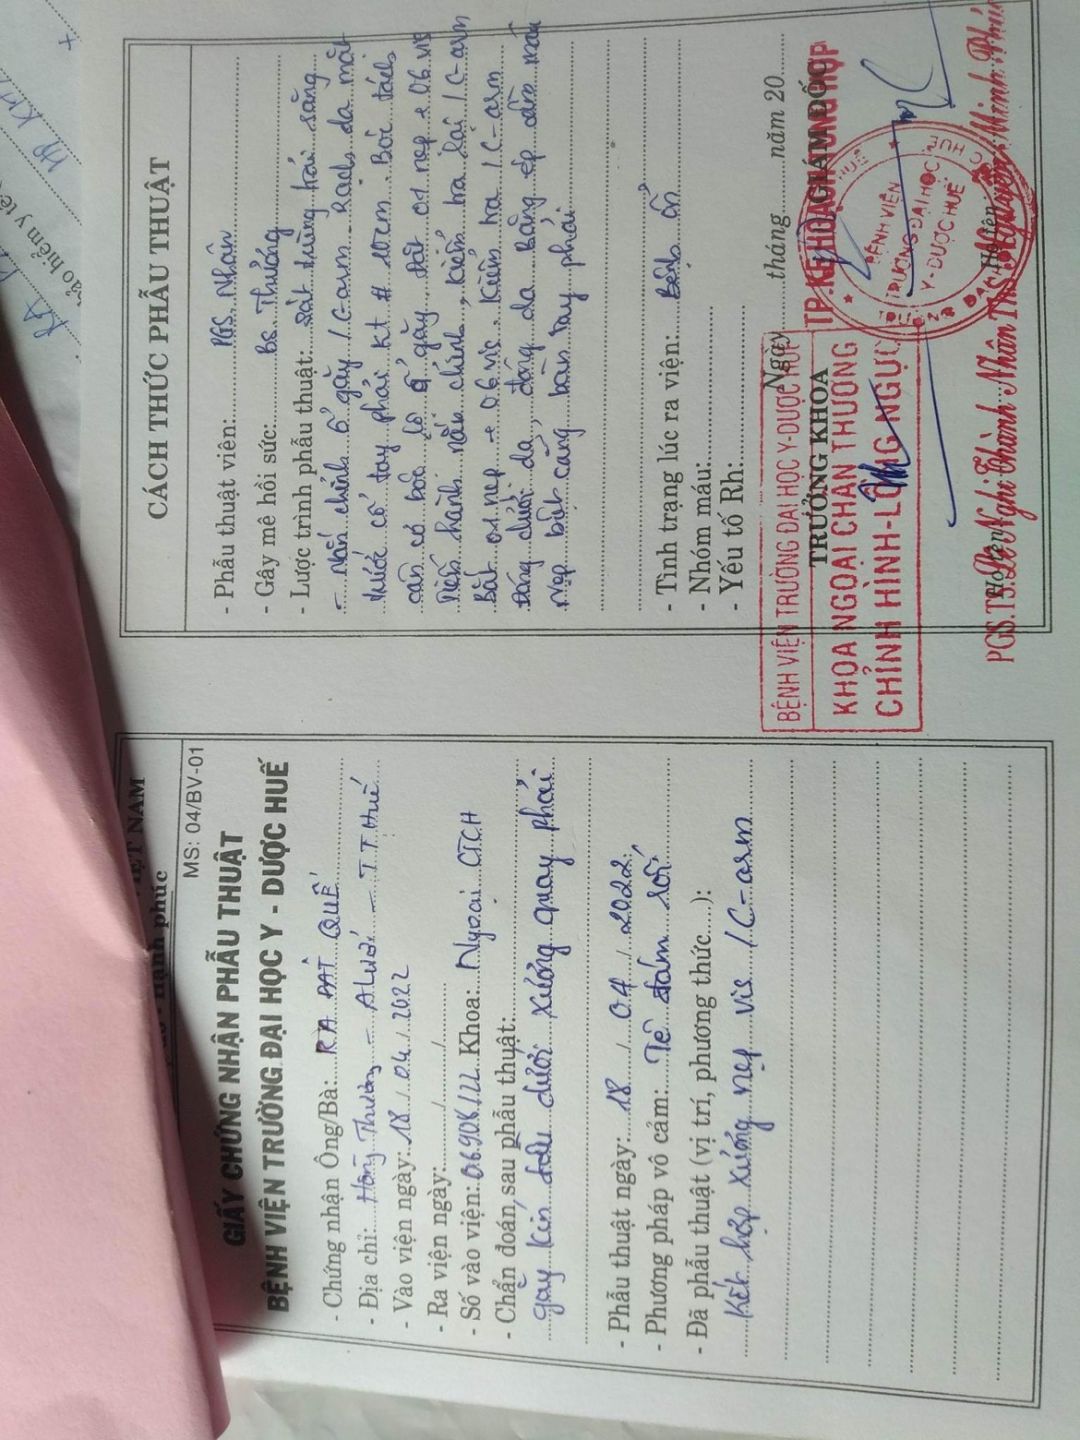 IỆT NAM
Hạnh phúc
MS: 04/BV-01
GIẤY CHỨNG NHẬN PHẪU THUẬT
BỆNH VIỆN TRƯỜNG ĐẠI HỌC Y - DƯỢC HUẾ
- Chứng nhận Ông/Bà: RA ĐẠT QUẾ
- Địa chỉ: Hồng Thượng - A Lưới - TT Huế
- Vào viện ngày: 18/04/2022
- Ra viện ngày:
- Số vào viện: 06908/22 Khoa: Ngoại CTCH
- Chẩn đoán sau phẫu thuật:
gãy kín đầu dưới xương quay phải
- Phẫu thuật ngày: 18/04/2022
- Phương pháp vô cảm: Tê đám rối
- Đã phẫu thuật (vị trí, phương thức...):
Kết hợp xương nẹp vis /C-arm
CÁCH THỨC PHẪU THUẬT
- Phẫu thuật viên: PGS Nhân
- Gây mê hồi sức: Bs Thưởng
- Lược trình phẫu thuật: sát trùng trải săng
- Nắn chỉnh ổ gãy /C-arm. Rạch da mặt
trước cổ tay phải kt # 10cm. Bóc tách
cân cơ bộc lộ ổ gãy, đặt 01 nẹp + 06 vis
Tiến hành nắn chỉnh, kiểm tra lại /C-arm
Bắt 01 nẹp + 06 vis. Kiểm tra /C-arm
Đóng dưới da, đóng da. Băng ép cầm máu
Nẹp bột cẳng bàn tay phải
- Tình trạng lúc ra viện: Bệnh ổn
- Nhóm máu:
- Yếu tố Rh:
Ngày tháng năm 20
BỆNH VIỆN TRƯỜNG ĐẠI HỌC Y-DƯỢC HUẾ
TRƯỞNG KHOA
KHOA NGOẠI CHẤN THƯƠNG
CHỈNH HÌNH-LỒNG NGỰC
GIÁM ĐỐC
BỆNH VIỆN
TRƯỜNG ĐẠI HỌC
Y - DƯỢC HUẾ
Họ tên
PGS.TS. Lê Nghi Thành Nhân
ảo hiểm y tế